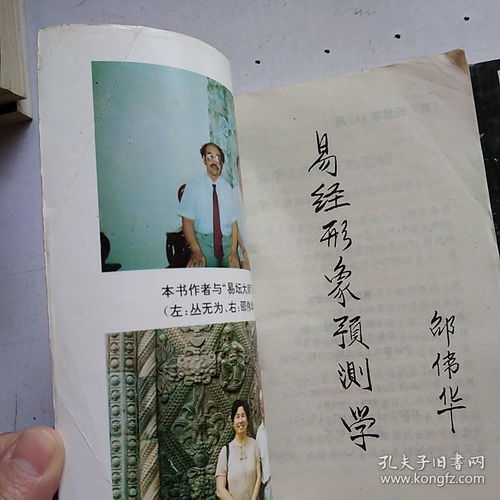 本书作者与“易坛大师
（左：丛无为、右：邵伟
易经形象预测学
邵伟华
孔夫子旧书网
kongfz.com